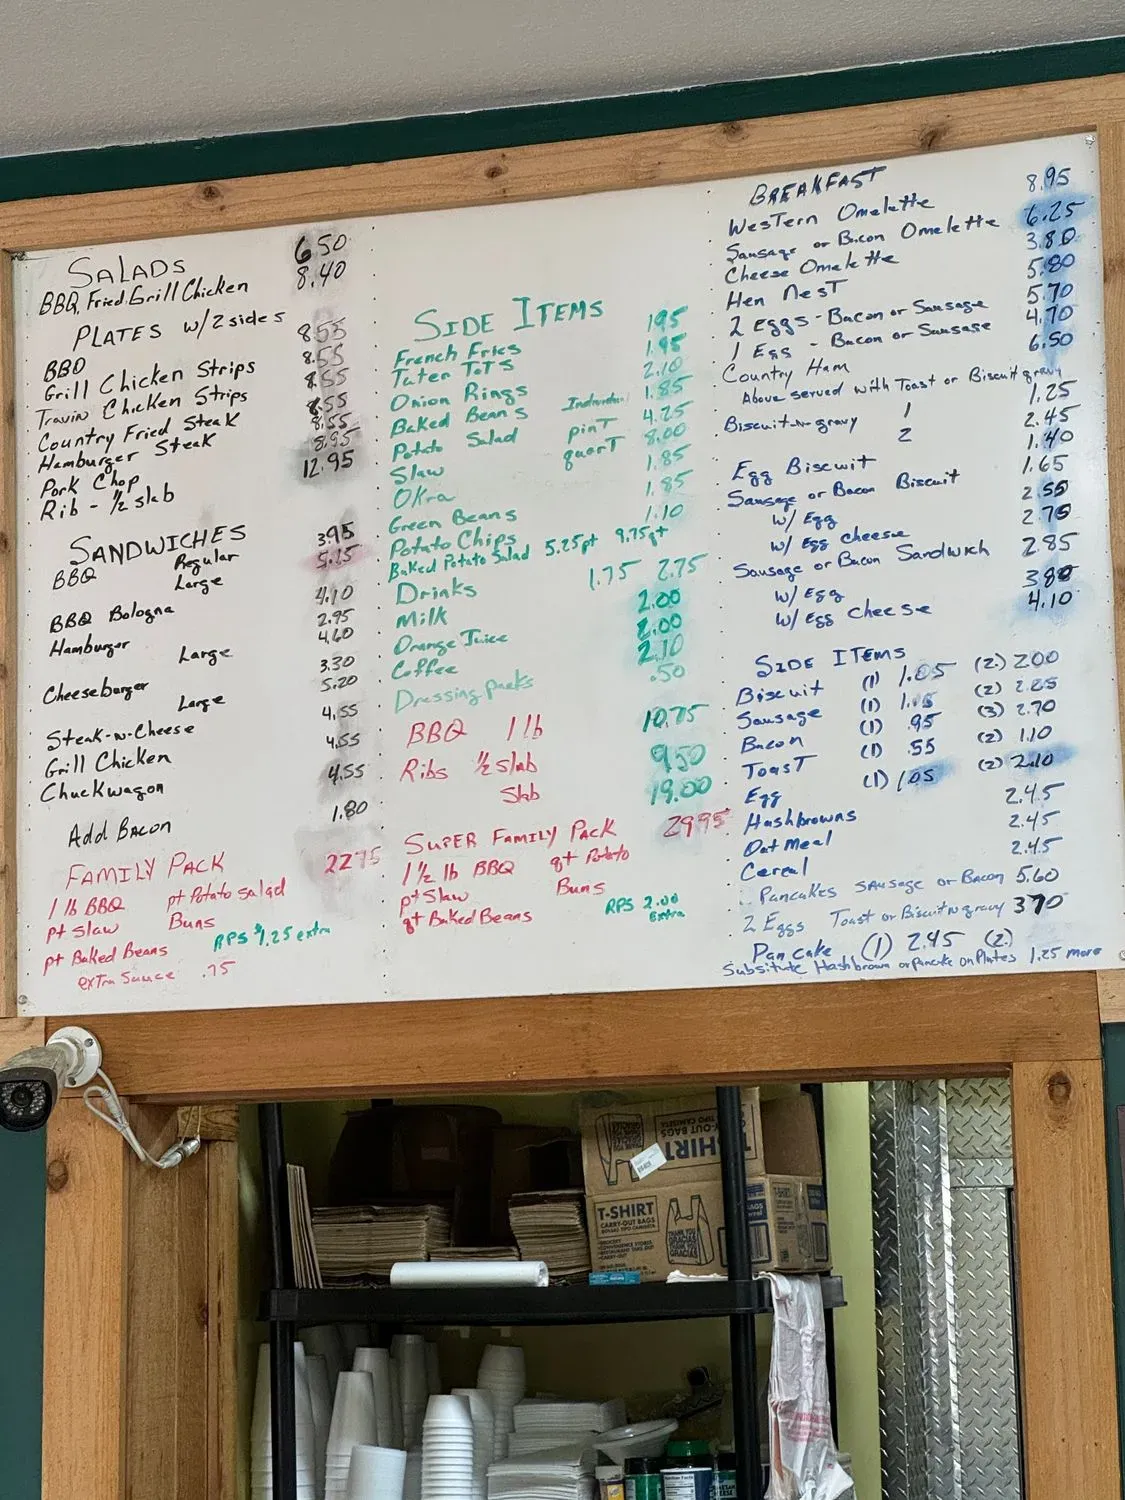 SALADS 6.50
BBQ, Fried, Grill Chicken 8.40
PLATES w/2 sides
BBQ 8.55
Grill Chicken Strips 8.55
Chicken Strips 8.55
Country Fried Steak 8.55
Hamburger Steak 8.55
Pork Chop 8.95
Rib - ½ slab 12.95
SANDWICHES
BBQ Regular 3.95
Large 5.25
BBQ Bologna 4.10
Hamburger 2.95
Large 4.60
Cheeseburger 3.30
Large 5.20
Steak-n-Cheese 4.55
Grill Chicken 4.55
Chuckwagon 4.55
Add Bacon 1.80
FAMILY PACK 22.75
1 lb BBQ pt Potato salad
pt Slaw Buns
pt Baked Beans RPS $1.25 extra
extra Sauce .75
SIDE ITEMS
French Fries 1.95
Tater Tots 1.95
Onion Rings 2.10
Baked Beans Individual 1.85
Potato Salad pinT 4.25
Slaw quarT 8.00
Okra 1.85
Green Beans 1.85
Potato Chips 1.10
Baked Potato Salad 5.25pt 9.75qt
Drinks 1.75 2.75
Milk 2.00
Orange Juice 2.00
Coffee 2.10
Dressing packs .50
BBQ 1 lb 10.75
Ribs ½ slab 9.50
Slab 19.00
SUPER FAMILY PACK 29.95
1 ½ lb BBQ qt Potato
pt Slaw Buns
qt Baked Beans RPS 2.00 extra
BREAKFAST
Western Omelette 8.95
Sausage or Bacon Omelette 6.25
Cheese Omelette 3.80
Hen Nest 5.80
2 Eggs - Bacon or Sausage 5.70
1 Egg - Bacon or Sausage 4.70
Country Ham 6.50
Above served with Toast or Biscuit gravy
Biscuit-n-gravy 1 1.25
2 2.45
Egg Biscuit 1.40
Sausage or Bacon Biscuit 1.65
w/ Egg 2.55
w/ Egg cheese 2.75
Sausage or Bacon Sandwich 2.85
w/ Egg 3.80
w/ Egg Cheese 4.10
SIDE ITEMS
Biscuit (1) 1.05 (2) 2.00
Sausage (1) (2) 2.25
Bacon (1) .95 (3) 2.70
Toast (1) .55 (2) 1.10
Egg (1) 1.05 (2) 2.10
Hashbrowns 2.45
Oat meal 2.45
Cereal 2.45
Pancakes Sausage or Bacon 5.60
2 Eggs Toast or Biscuit n gravy 3.70
Pancake (1) 2.45 (2)
Subsitute Hashbrown or pancake on Plates 1.25 more
T-SHIRT
CARRY-OUT BAGS
THANK YOU
GRACIAS